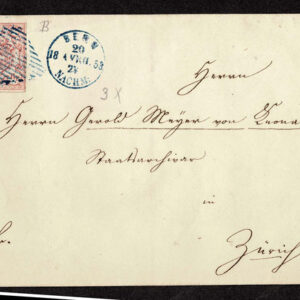 B
BERN
20
18 APRIL 53
NACHM:
3 X
Herrn
Herrn Gerold Meyer von Knona
Staatsarchivar
in
Zürich